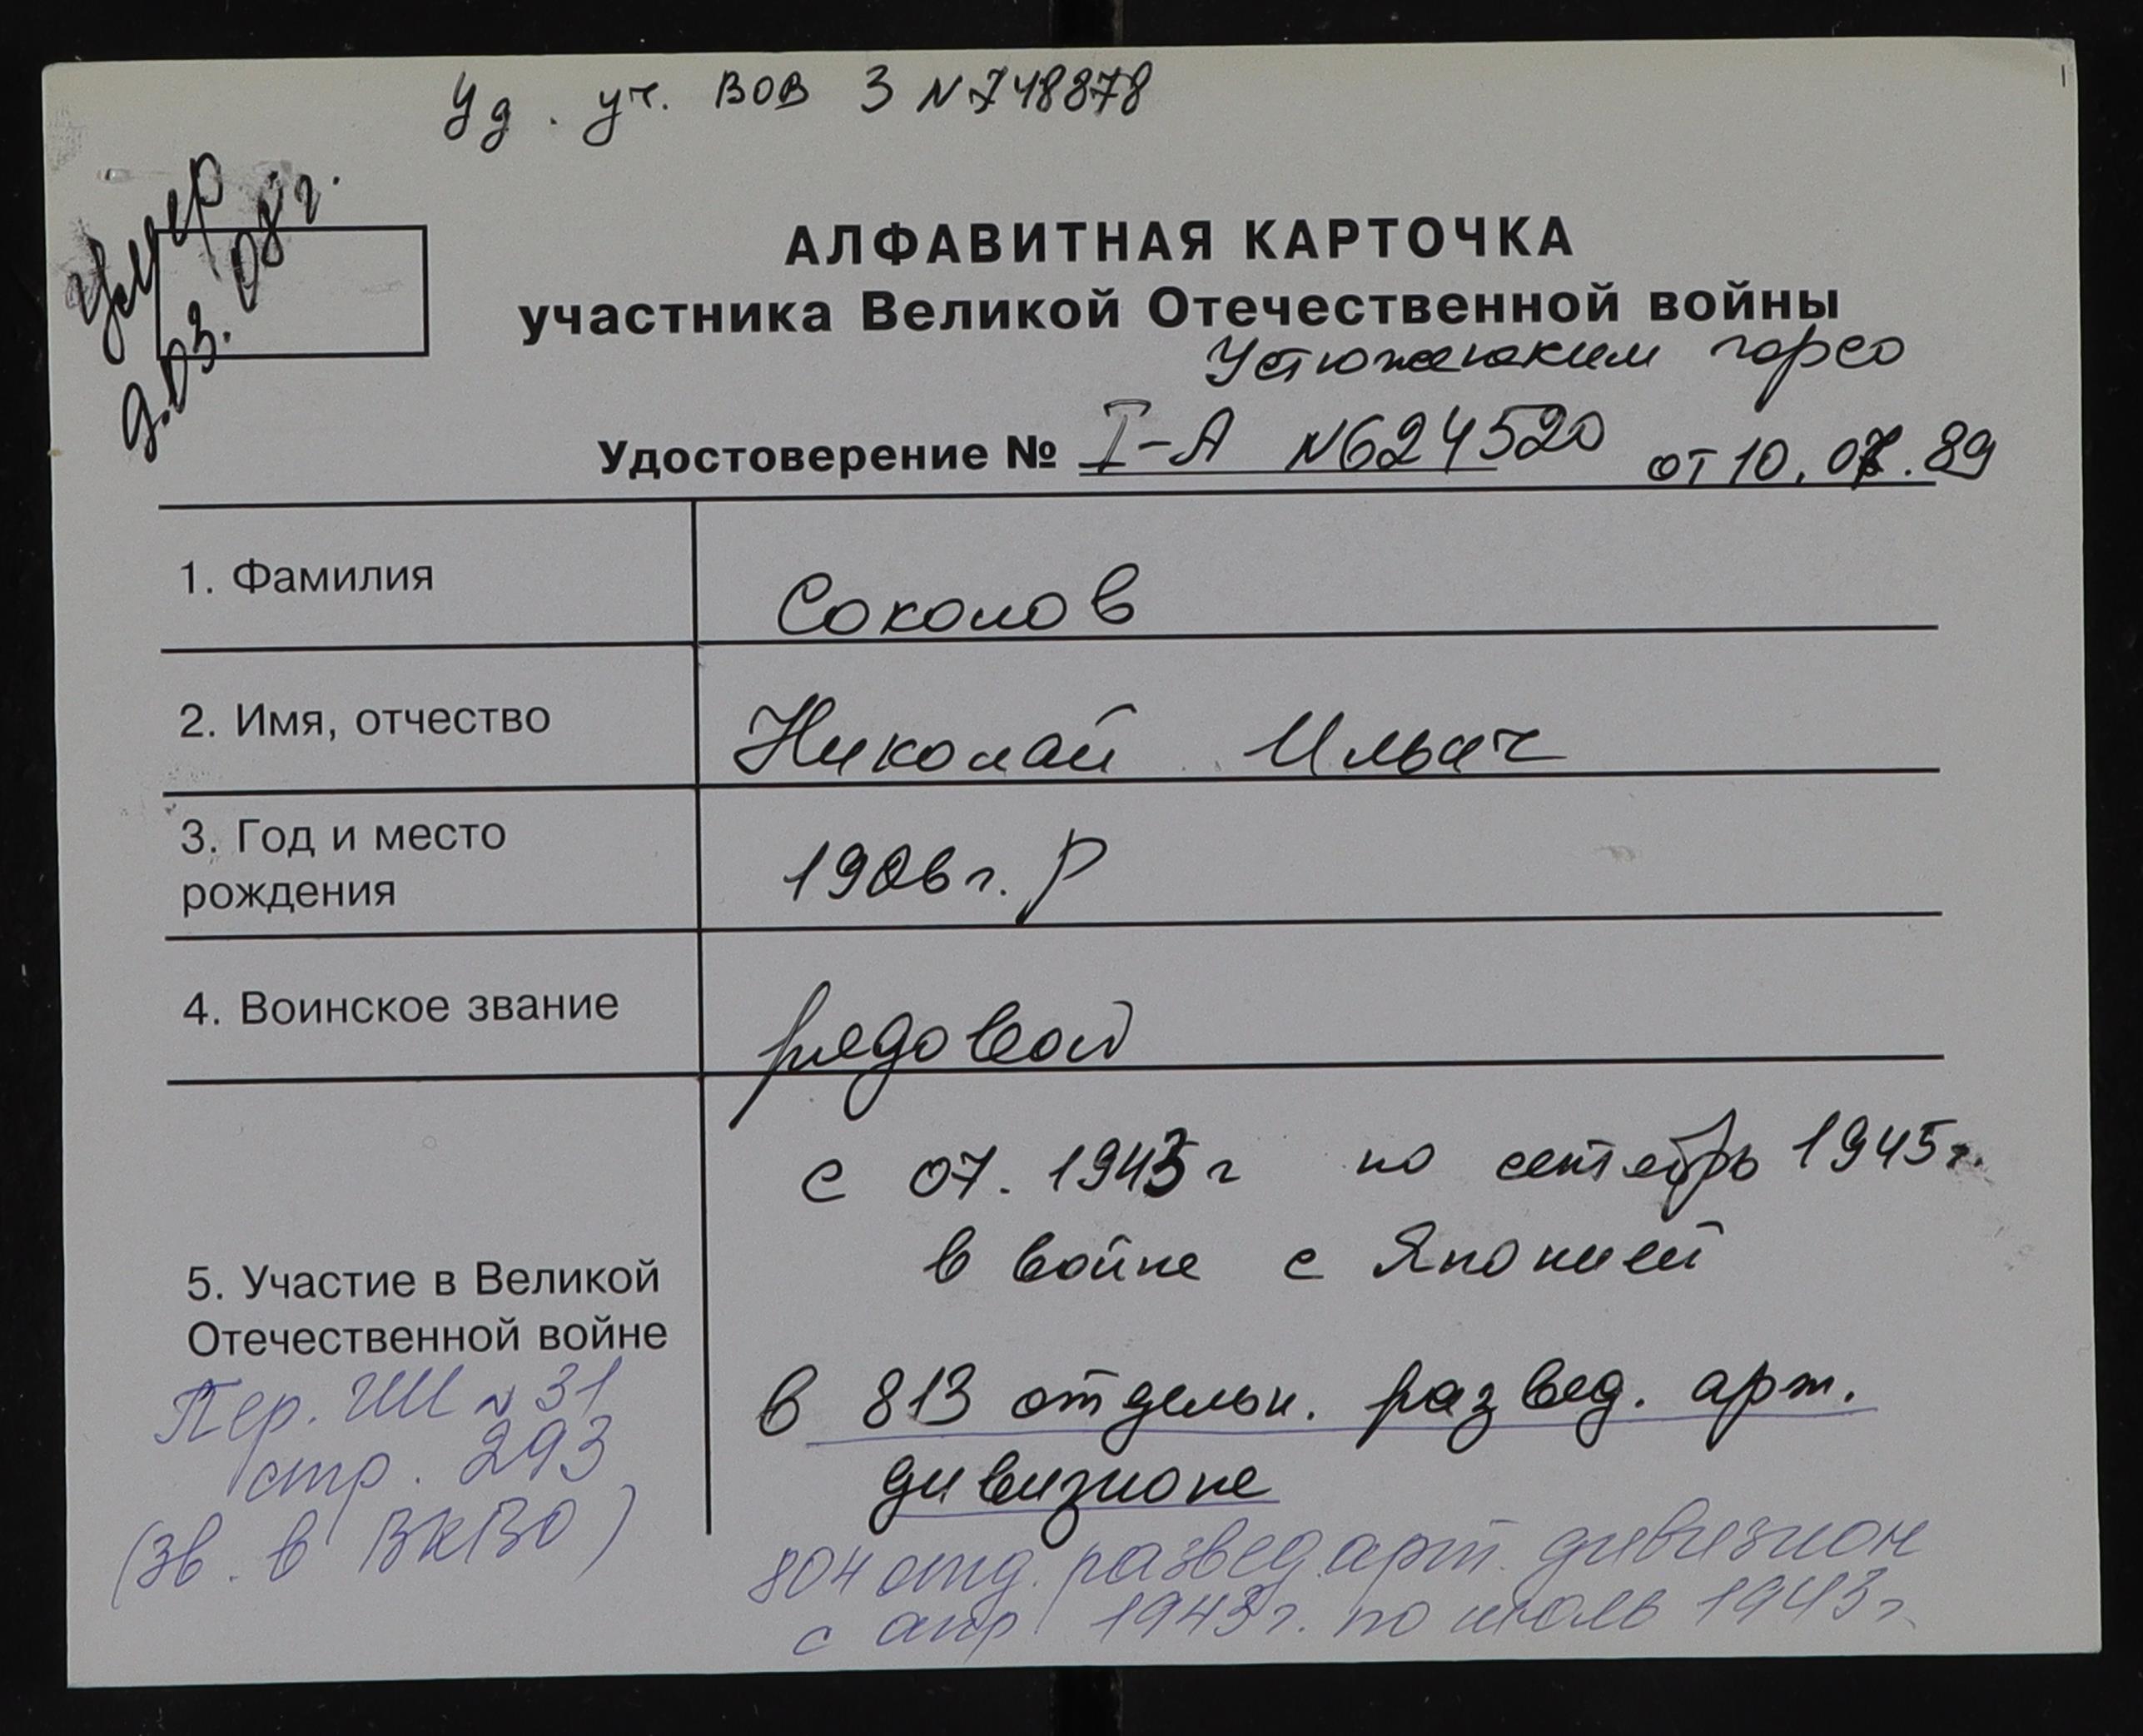 Уд. уч. ВОВ З N 748878
Умер
9.03.08 г.
АЛФАВИТНАЯ КАРТОЧКА
участника Великой Отечественной войны
Устюженским горсо
Удостоверение № I-А N624520 от 10.07.89
1. Фамилия Соколов
2. Имя, отчество Николай Ильич
3. Год и место рождения 1926 г. р
4. Воинское звание рядовой
с 07. 1943 г по сентябрь 1945 г.
в войне с Японией
5. Участие в Великой
Отечественной войне
в 813 отдельн. развед. арт.
дивизионе
Пер. ГШ N 31
стр. 293
(зв. в ВКВО)
804 отд. развед. арт. дивизион
с апр 1943 г. по июль 1943 г